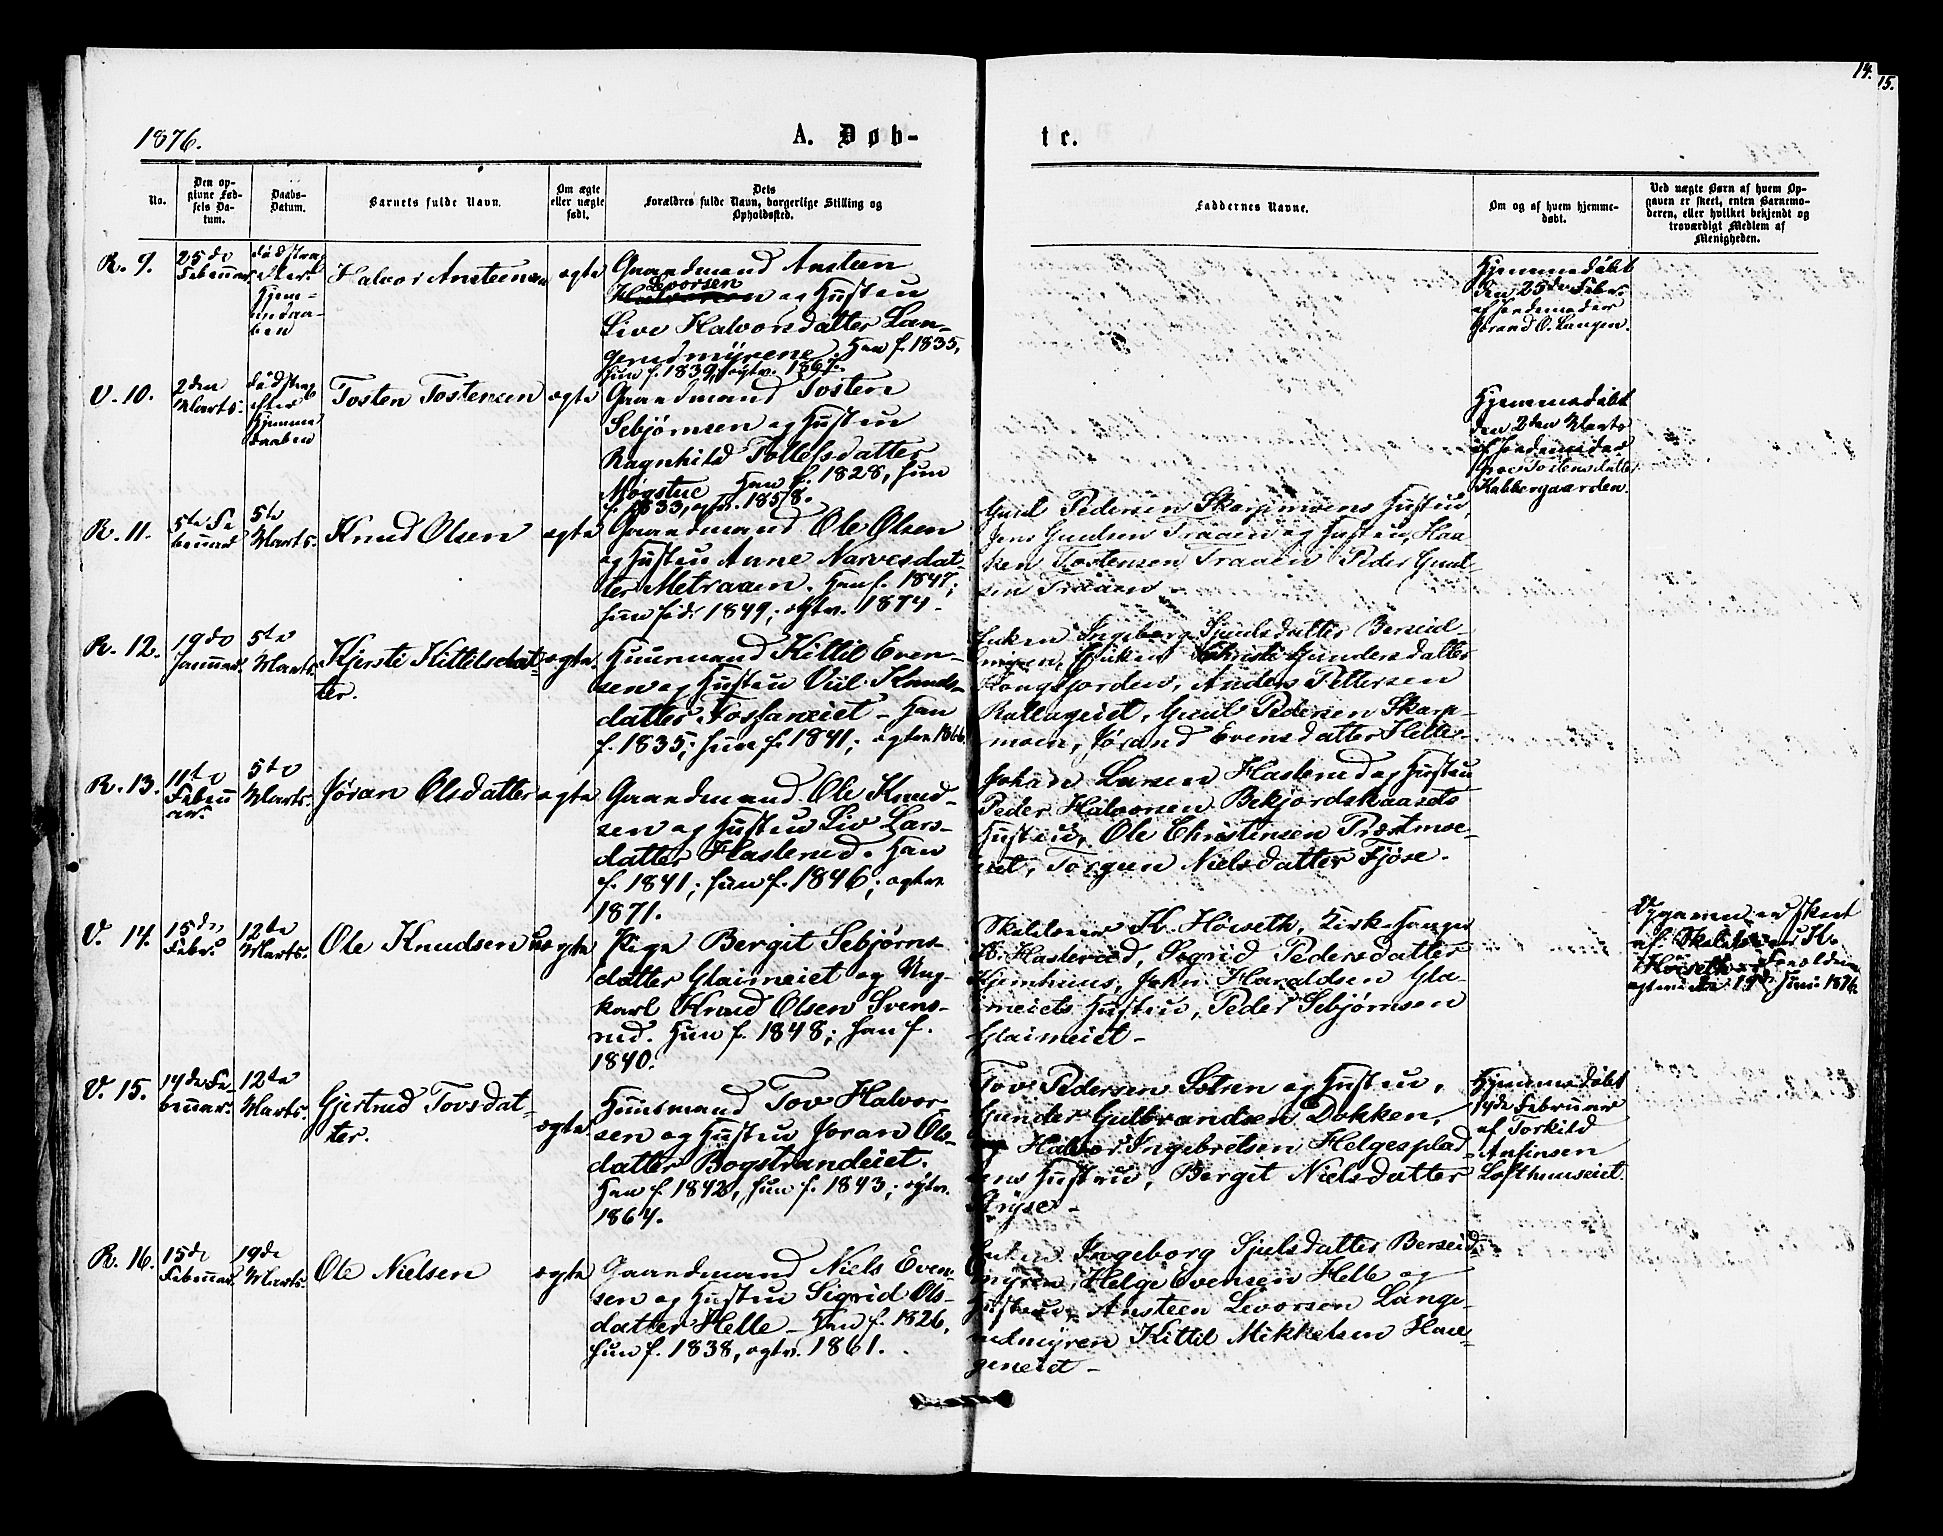 14.
15.
1876.
A. Døb-
te.
No.
Den op-
givne Fød-
sels Da-
tum.
Daabs-
Datum.
Barnets fulde Navn.
Om ægte
eller uægte
født.
Dets
Forældres fulde Navn, borgerlige Stilling og
Opholdssted.
Faddernes Navne.
Om og af hvem hjemme-
døbt.
Ved uægte Børn af hvem Op-
gaven er skeet, enten Barnemo-
deren, eller hvilket bekjendt og
troværdigt Medlem af
Menigheden.
R. 9.
25de
Februar
død strax
efter
Hjem-
medaa-
ben
Halvor Ansteensen
ægte
Gaardmand Ansteen
Levorsen
og Hustru
Live Halvorsdatter Lan-
gerudmyrene. Han f. 1835,
Hun f. 1839, ægtev. 1867.
Hjemmedøbt
den 25de Febr.
af Jordemoder
Jorand O. Langen.
V. 10.
2den
Marts.
død strax
efter
Hjemme
daaben
Tosten Tostensen
ægte
Gaardmand Tosten
Sebjørnsen og Hustru
Ragnhild Tollefsdatter
Møgstue Han f. 1828, Hun
f. 1833, ægtv. 1858.
Hjemmedøbt
den 2den Marts
af Jordemoder
Kabbergaarden.
R. 11.
5te Fe
bruar
5te
Marts.
Knud Olsen
ægte
Gaardmand Ole Olsen
og Hustru Anne Narvesdat
ter Metraaen. Han f. 1847;
Hun fød: 1849; ægtv. 1874.
Guul Pedersen Skarpmoens Hustru,
Jens Gudsen Traaen og Hustru, Haa-
ken Tostensen Traaen Peder Guul-
sen Traaen
R. 12.
19de
Januar.
5te
Marts.
Kjersti Kittilsdat-
ter.
ægte.
Huusmand Kittil Even-
sen og Hustru Viil Knuds-
datter Fossaneiet - Han
f. 1835; Hun f. 1841; ægtev. 1866
Enken Ingeborg Sjulsdatter Berseid-
myren, Enken Christi Gundersdatter
Kongsjorden, Anders Pettersen
Rallageiet, Guul Pedersen Skarp-
moen, Jørand Evensdatter Helle-
R. 13.
11te
Febru
ar.
5te
Marts.
Jøran Olsdatter
ægte
Gaardmand Ole Knud-
sen og Hustru Liv Lars-
datter Flasterud. Han
f. 1841; Hun f. 1846; ægtev.
1871.
Johan Larsen Flasterud og Hustru
Peder Halvorsen Bekjordskaasets
Hustru, Ole Christensen Præstmoe-
eiet, Torgun Nielsdatter Fjøse.
V. 14.
15de
Febr.
12te
Marts.
Ole Knudsen
uægte
Pige Bergit Sebjørns-
datter Glaimeiet og Ung-
karl Knud Olsen Svens-
rud. Hun f. 1848; Han f.
1840.
Skolelærer K. Høiseth, Kirkesanger
H. Flasterud, Sigrid Pedersdatter
Kjemhuus, John Haraldsen Gla-
imeiets Hustru, Peder Sebjørnsen
Glaimeiet -
Opgaven er skeet
af Skolelærer K.
Høiseth - Forældrene
ægteviede 19de Juni 1876.
V. 15.
14de Fe-
bruar.
12te
Marts.
Gjertrud Tovsdat-
ter.
ægte
Huusmand Tov Halvor
sen og Hustru Joran Ols-
datter Bogstrandeiet.
Han f. 1842, Hun f. 1843; ægtv.
1864.
Tov Pedersen Solsen og Hustru,
Gunder Gulbrandsen Dokken,
Halvor Ingebretsen Helgesplad
sens Hustru, Bergit Nielsdatter
Stryse -
Hjemmedøbt
14de Februar
af Torkild
Anfinsen
Lofthuuseiet.
R. 16.
15de
Februar.
19de
Marts.
Ole Nielsen
ægte
Gaardmand Niels Even-
sen og Hustru Sigrid Ols-
datter Helle - Han f. 1826,
Hun f. 1838, ægtv. 1861.
Enken Ingeborg Sjulsdatter Berseid-
myren, Helge Evensen Helle og
Hustru, Ansteen Levorsen Lange-
rudmyren Kittil Mikkelsen Hau-
geneiet -